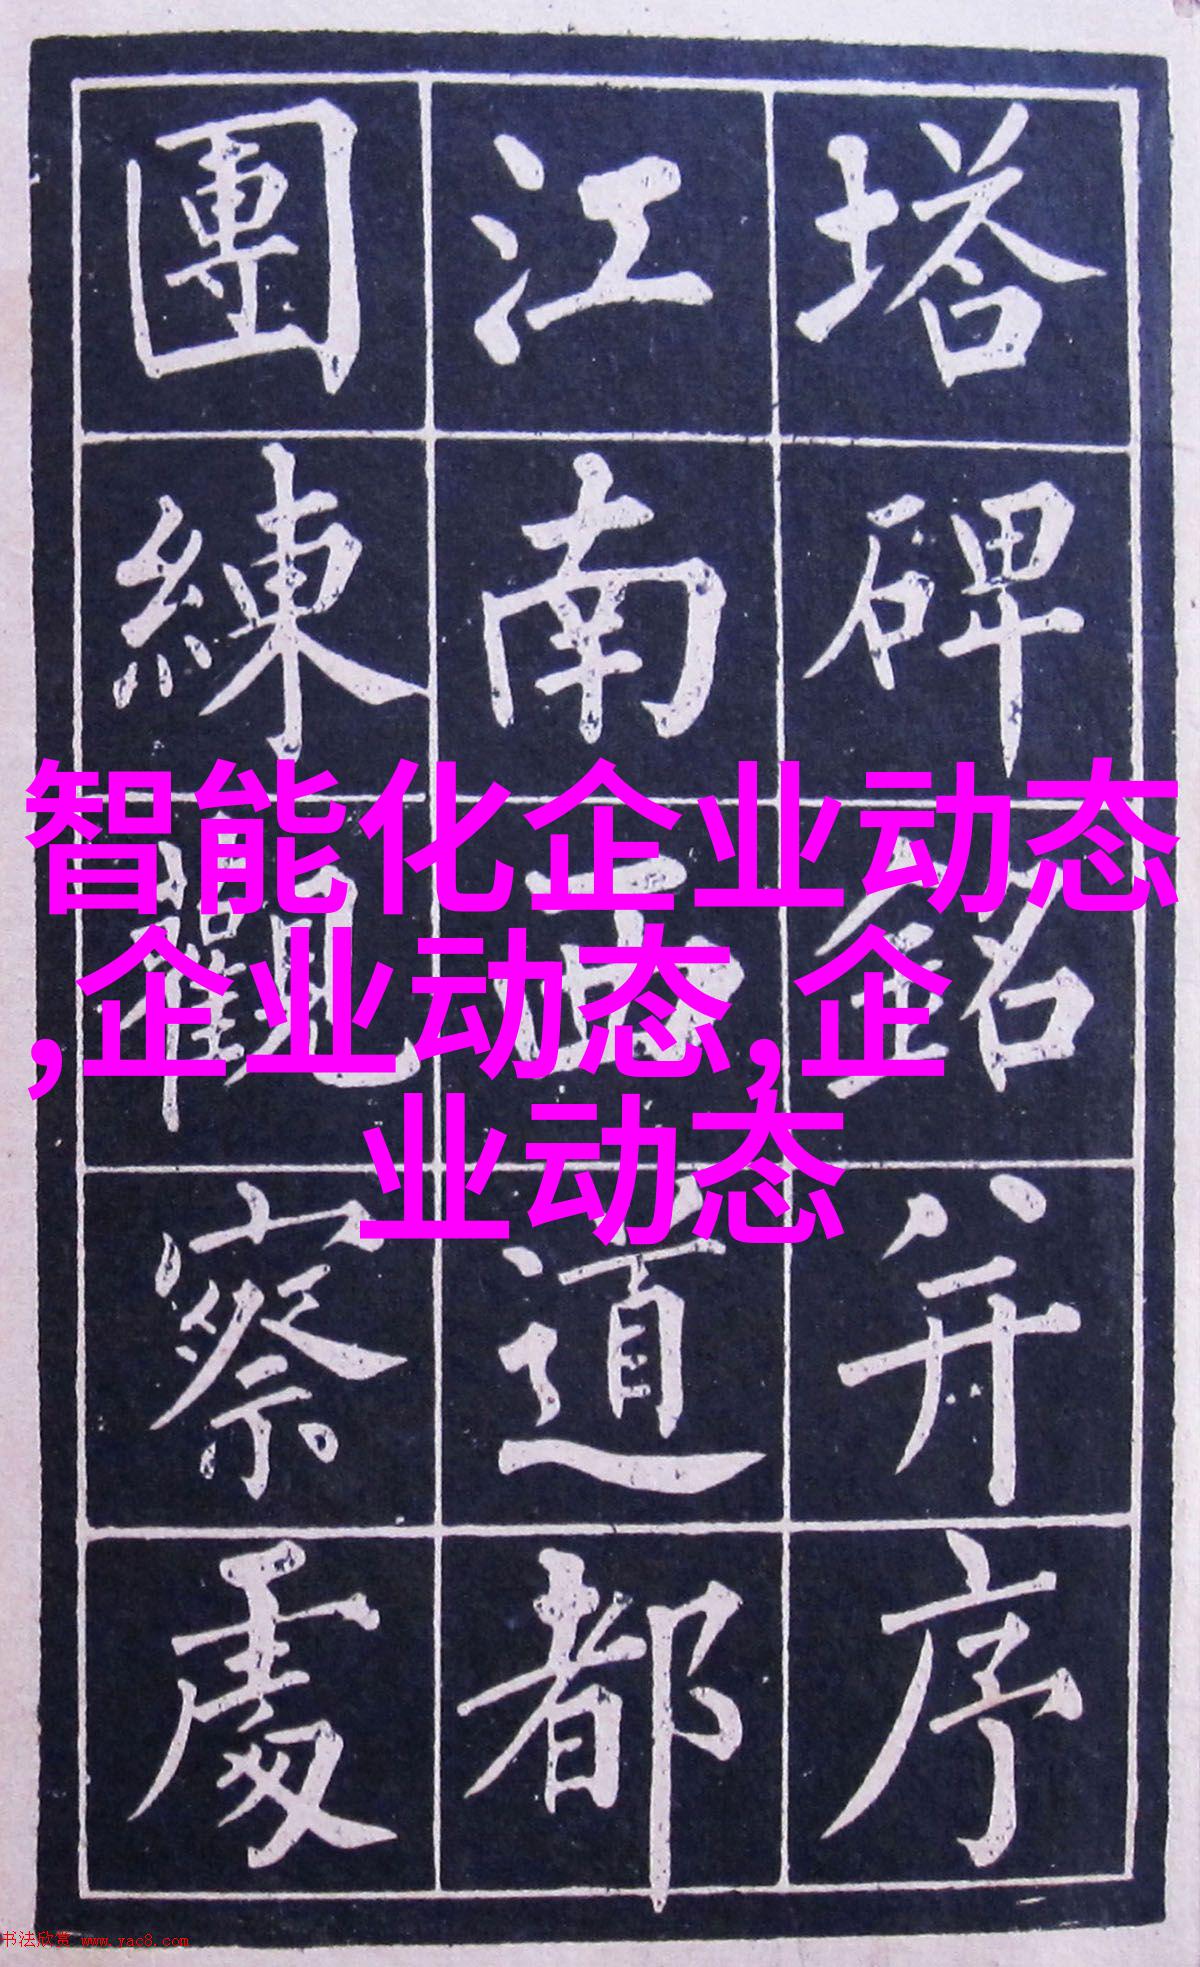 塔碑銘并序
江南西道都
團練觀察處
智能化企业动态
,企业动态,企
业动态
书法欣赏 www.yac8.com